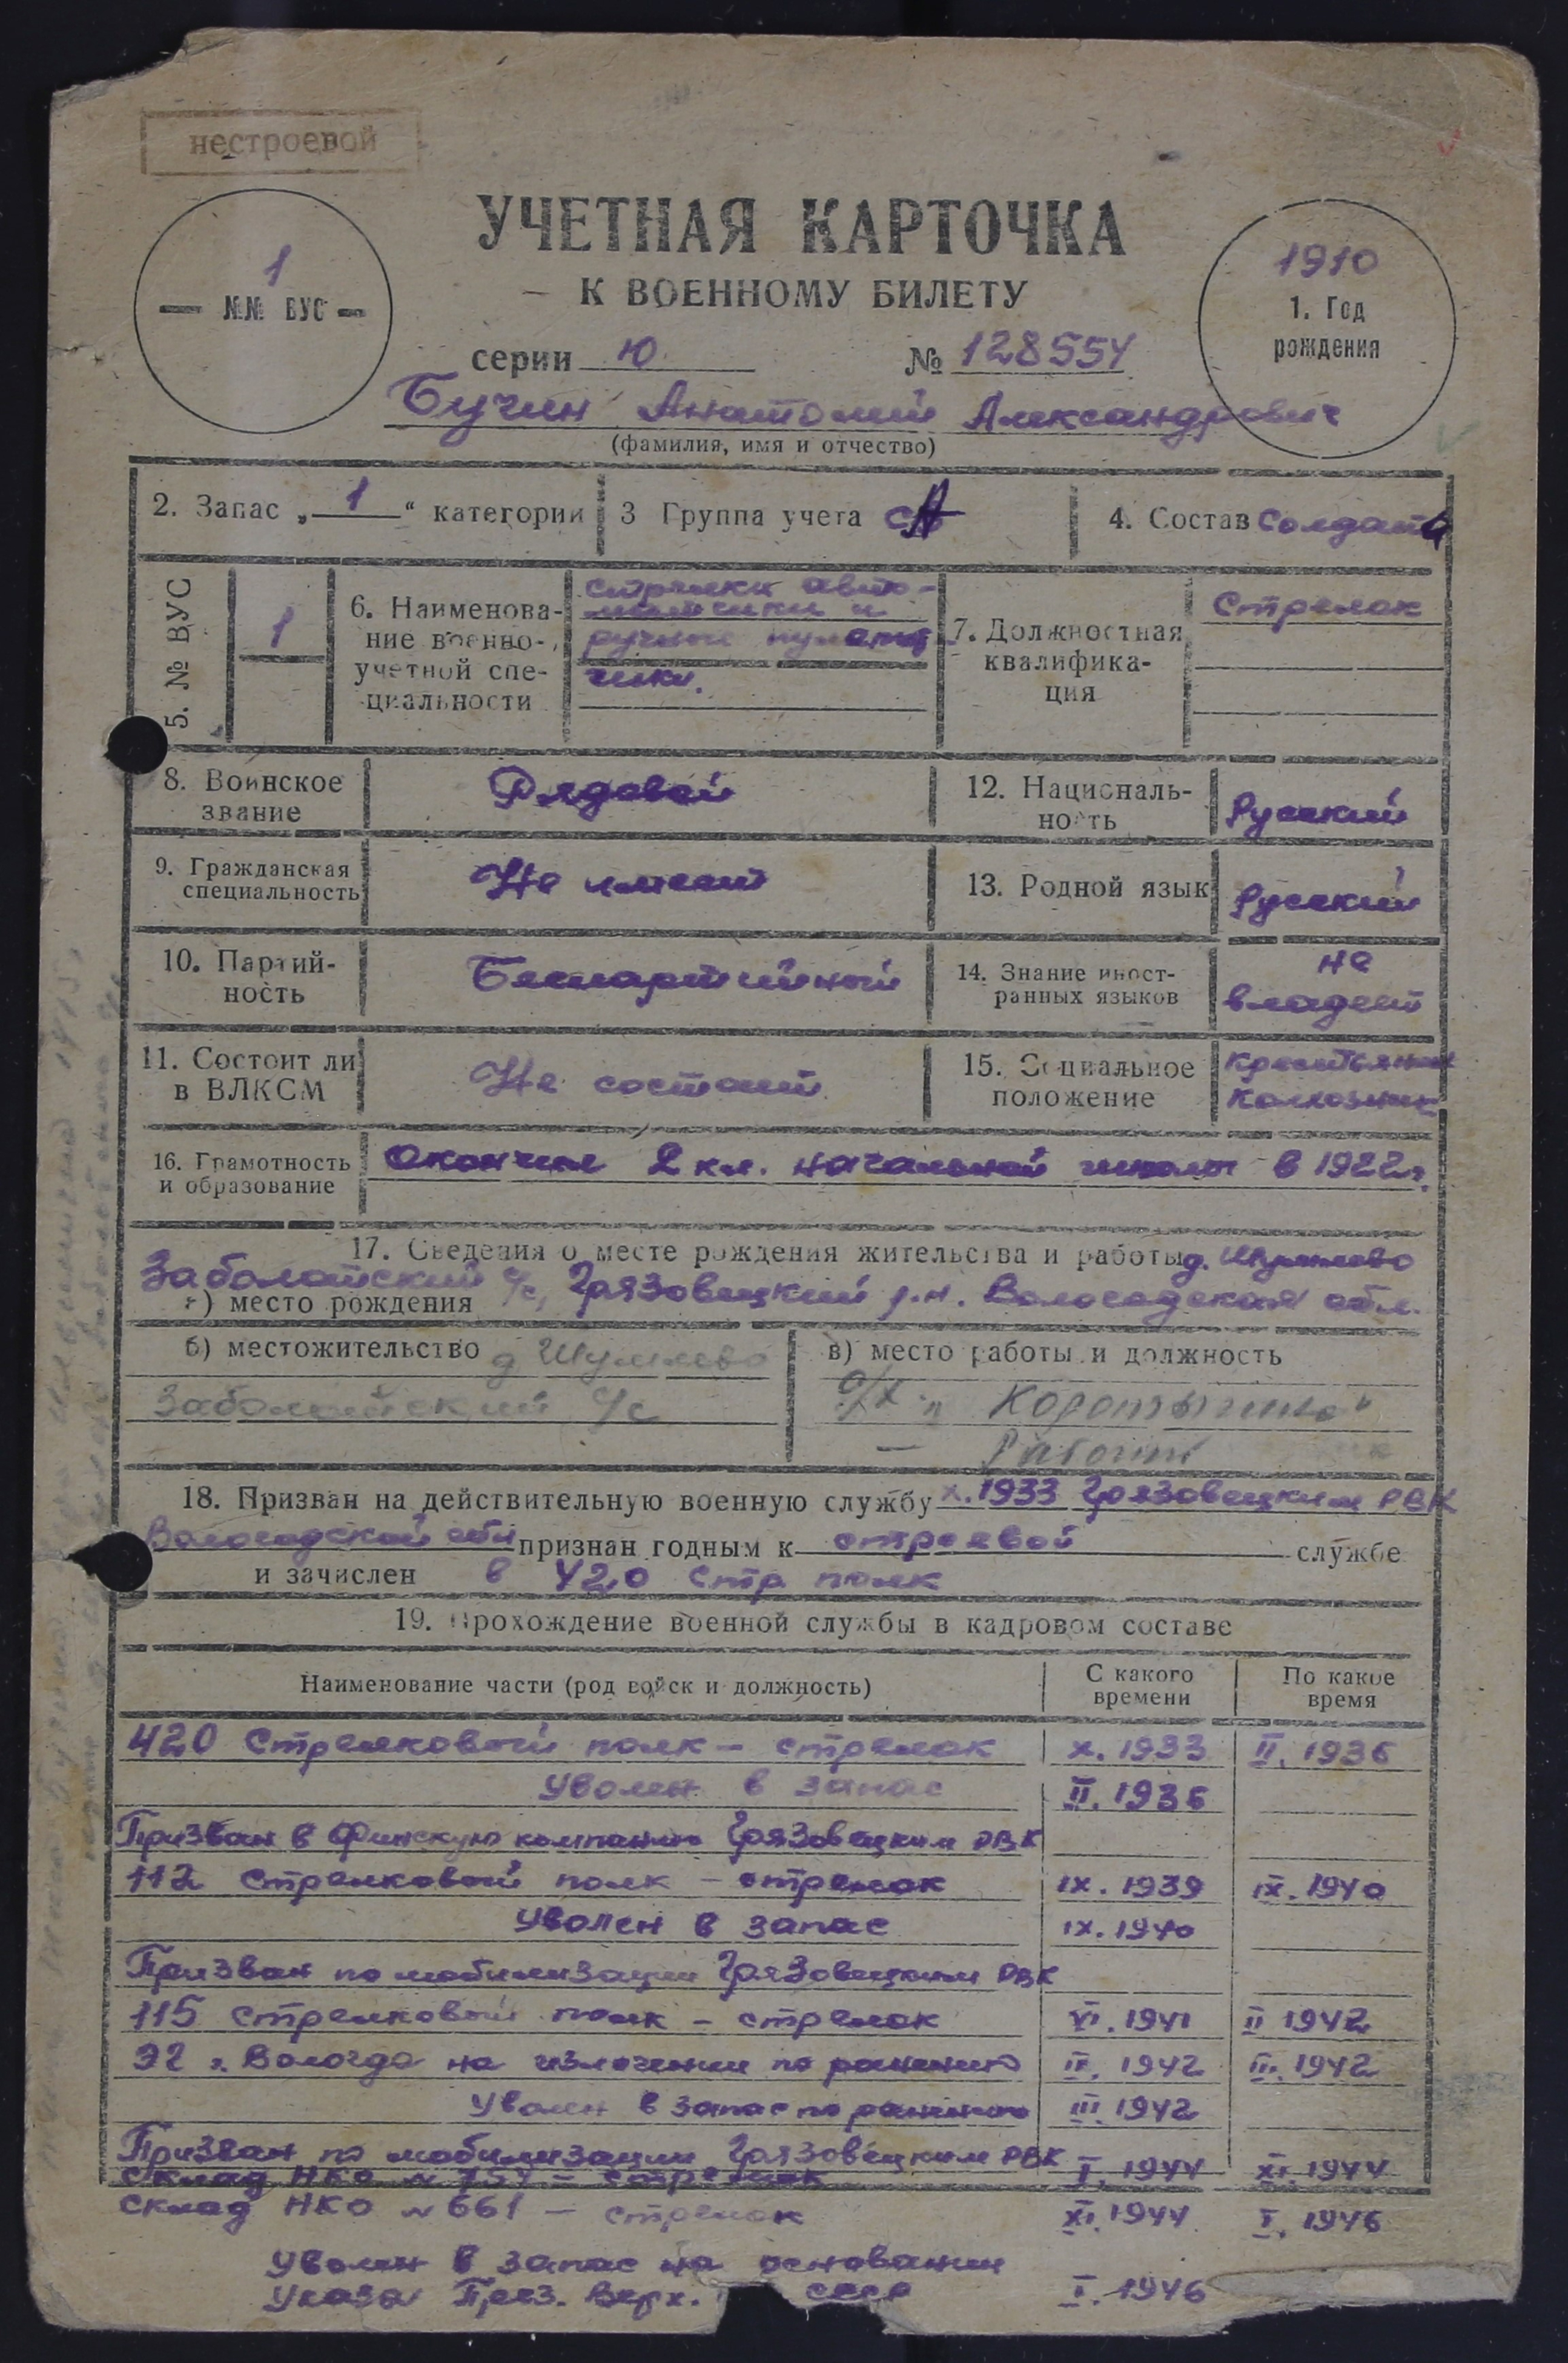 нестроевой
УЧЕТНАЯ КАРТОЧКА
К ВОЕННОМУ БИЛЕТУ
1
№№ ВУС
1910
1. Год
рождения
серии Ю № 128554
Бучин Анатолий Александрович
(фамилия, имя и отчество)
2. Запас „ 1 “ категории
3 Группа учета СА
4. Состав Солдата
5. № ВУС
1
6. Наименова-
ние военно-
учетной спе-
циальности
стрелки авто-
матчики и
ручные пулемет
чики.
7. Должностная
квалифика-
ция
Стрелок
8. Воинское
звание
Рядовой
12. Националь-
ность
Русский
9. Гражданская
специальность
Не имеет
13. Родной язык
Русский
10. Партий-
ность
Беспартийный
14. Знание иност-
ранных языков
не
владеет
11. Состоит ли
в ВЛКСМ
Не состоит
15. Социальное
положение
Крестьянин
Колхозник
16. Грамотность
и образование
Окончил 2 кл. начальной школы в 1922г.
17. Сведения о месте рождения жительства и работы д. Шумлево
Заболотский с/с, Грязовецкий р.н. Вологодская обл.
а) место рождения
б) местожительство д Шумлево
Заболотский с/с
в) место работы и должность
с/х „Коротыгино“
— Рабочий
18. Призван на действительную военную службу X.1933 Грязовецким РВК
Вологодской обл признан годным к строевой службе
и зачислен в 420 стр полк
19. Прохождение военной службы в кадровом составе
Наименование части (род войск и должность)
С какого
времени
По какое
время
420 Стрелковый полк – стрелок X. 1933 II. 1936
Уволен в запас II. 1936
Призван в Финскую компанию Грязовецким РВК
112 Стрелковый полк – стрелок IX. 1939 IX. 1940
Уволен в запас IX. 1940
Призван по мобилизации Грязовецким РВК
115 Стрелковый полк – стрелок VI. 1941 II 1942
ЭГ г. Вологда на излечении по ранению II. 1942 III. 1942
Уволен в запас по ранению III. 1942
Призван по мобилизации Грязовецким РВК
Склад НКО № – стрелок I. 1944 XI. 1944
Склад НКО № 661 – стрелок XI. 1944 I. 1946
Уволен в запас на основании
Указа През. Верх. СССР I. 1946